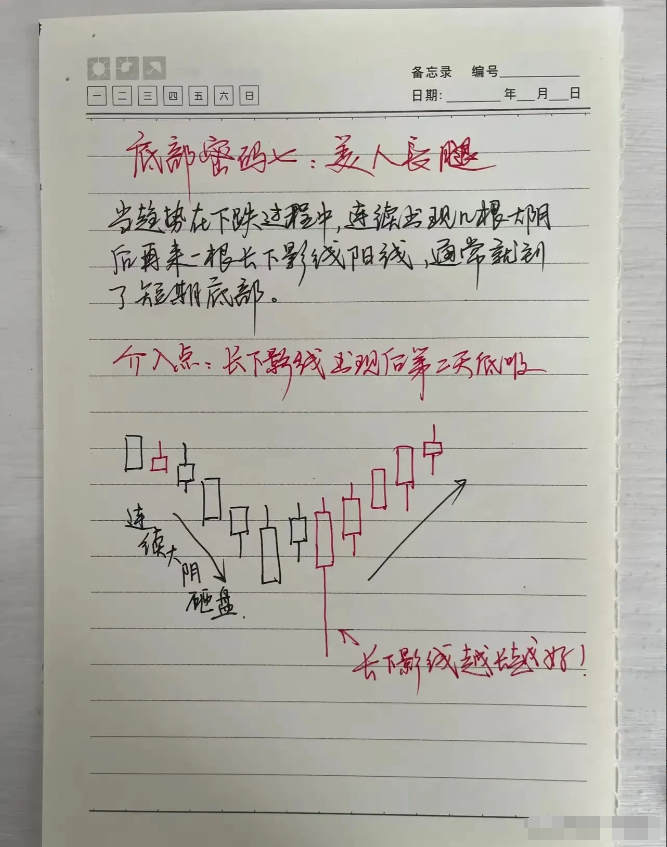 一 二 三 四 五 六 日
备忘录 编号
日期: 年 月 日
底部密码七：美人长腿
当趋势在下跌过程中，连续出现几根大阴
后再来一根长下影线阳线，通常就到
了短期底部。
介入点：长下影线出现后第二天低吸
连续大阴砸盘
长下影线越长越好！